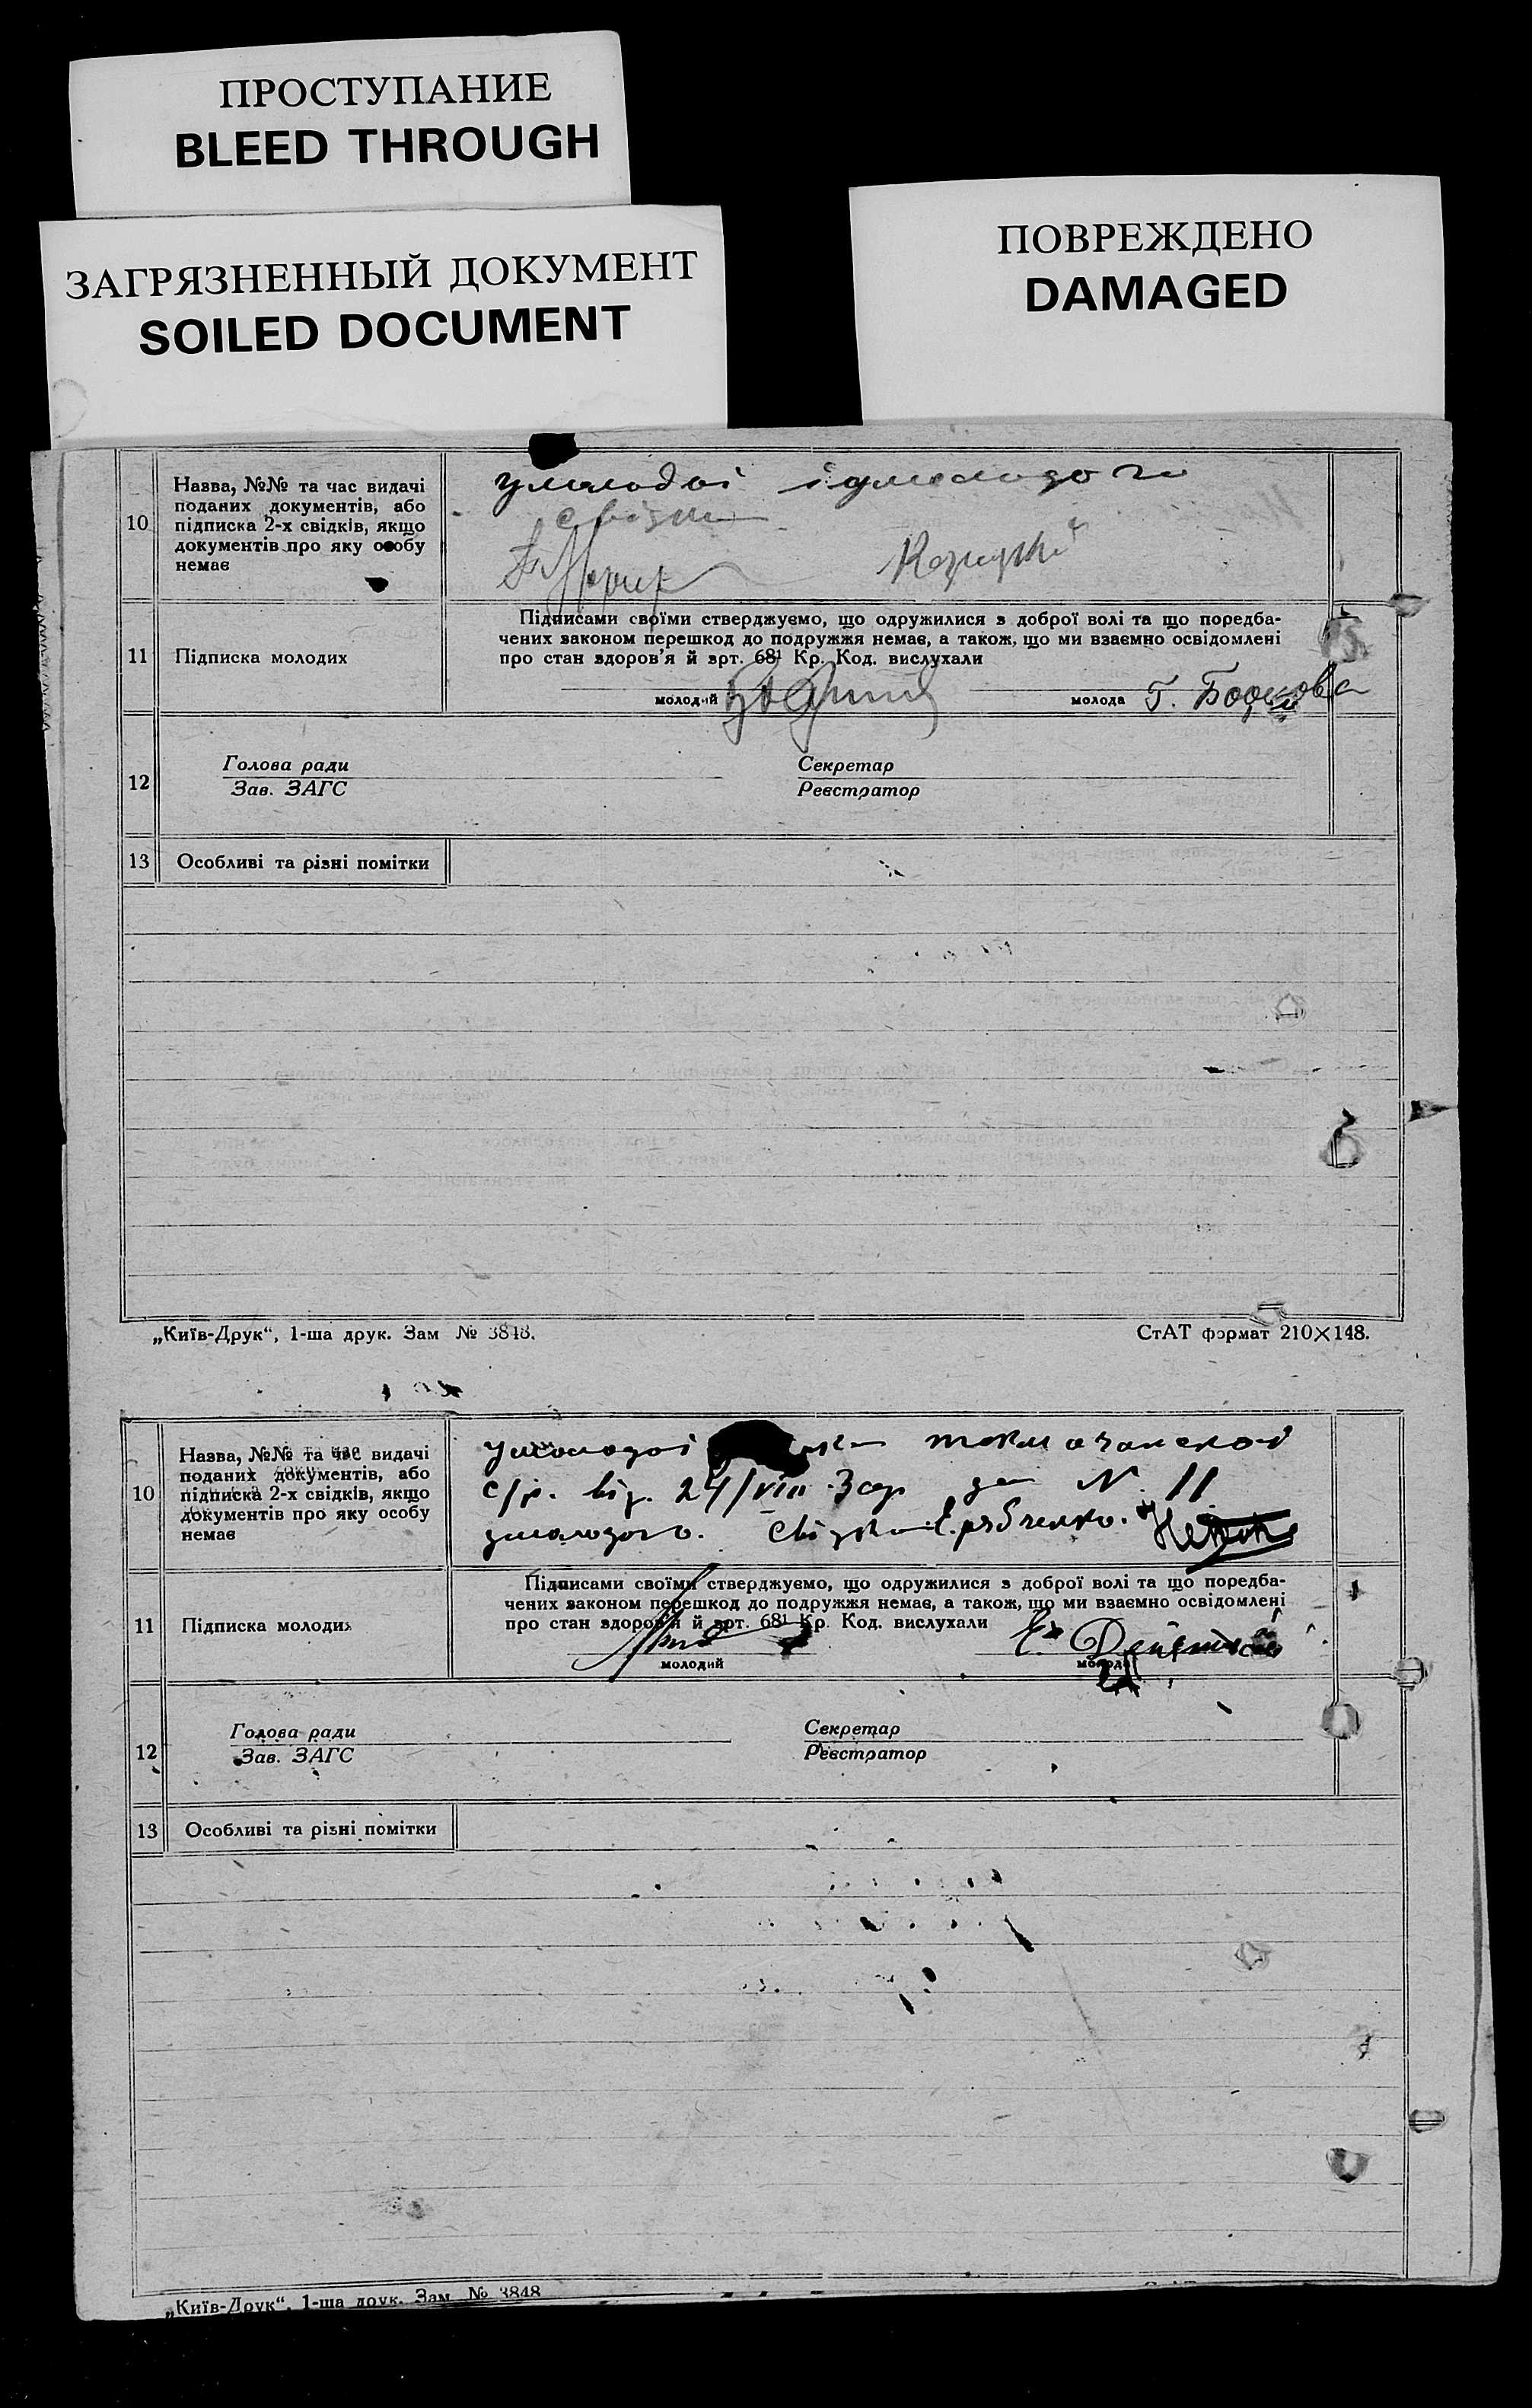 ПРОСТУПАНИЕ
BLEED THROUGH
ЗАГРЯЗНЕННЫЙ ДОКУМЕНТ
SOILED DOCUMENT
ПОВРЕЖДЕНО
DAMAGED
10
Назва, №№ та час видачі
поданих документів, або
підписка 2-х свідків, якщо
документів про яку особу
немає
умолодоі і умолодого
свідки
11
Підписка молодих
Підписами своїми стверджуємо, що одружилися з доброї волі та що поредба-
чених законом перешкод до подружжя немає, а також, що ми взаємно освідомлені
про стан здоров'я й арт. 68¹ Кр. Код. вислухали
молодий
молода Г.
12
Голова ради
Зав. ЗАГС
Секретар
Реєстратор
13
Особливі та різні помітки
„Київ-Друк“, 1-ша друк. Зам № 3848.
СтАТ формат 210×148.
10
Назва, №№ та час видачі
поданих документів, або
підписка 2-х свідків, якщо
документів про яку особу
немає
умолодоі
с/р. від. 24/VIII за N 11
умолодого. свідки Е. рябченко.
11
Підписка молодих
Підписами своїми стверджуємо, що одружилися з доброї волі та що поредба-
чених законом перешкод до подружжя немає, а також, що ми взаємно освідомлені
про стан здоров'я й арт. 68¹ Кр. Код. вислухали
молодий
молода
12
Голова ради
Зав. ЗАГС
Секретар
Реєстратор
13
Особливі та різні помітки
„Київ-Друк“, 1-ша друк. Зам № 3848